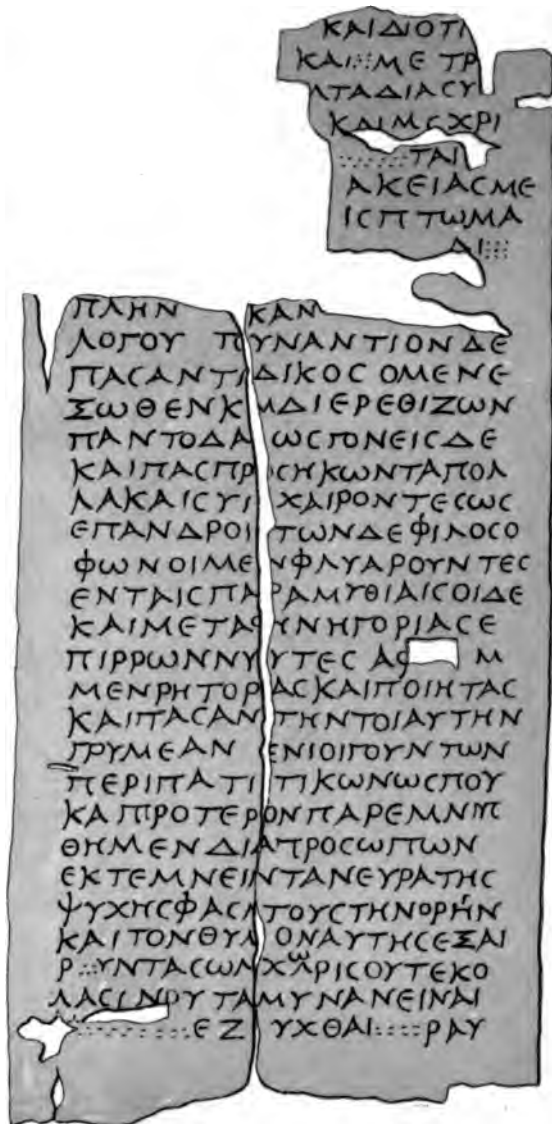 ΚΑΙΔΙΟΤΙ
ΚΑΙ ΜΕ ΤΡ
ΛΤΑΔΙΑСΥ
ΚΑΙΜСΧΡΙ
ΤΑΙ
ΑΚΕΙΑСΜΕ
ΙСΠΤΩΜΑ
ΔΙ
ΠΛΗΝ ΚΑΝ
ΛΟΓΟΥ ΤΟΥΝΑΝΤΙΟΝΔΕ
ΠΑСΑΝΤΙΔΙΚΟСΟΜΕΝΕ
ΞΩΘΕΝΚΜΔΙΕΡΕΘΙΖΩΝ
ΠΑΝΤΟΔΑ ΩСΓΟΝΕΙСΔΕ
ΚΑΙΠΑСΠΡΟСΗΚΩΝΤΑΠΟΛ
ΛΑΚΑΙСΥΓΧΑΙΡΟΝΤΕСΩС
ΕΠΑΝΔΡΟΙ ΤΩΝΔΕΦΙΛΟСΟ
ΦΩΝΟΙΜΕΝΦΛΥΑΡΟΥΝΤΕС
ΕΝΤΑΙСΠΑΡΑΜΥΘΙΑΙСΟΙΔΕ
ΚΑΙΜΕΤΑСΥΝΗΓΟΡΙΑСΕ
ΠΙΡΡΩΝΝΥΥΤΕС ΑΦ Μ
ΜΕΝΡΗΤΟΡΑСΚΑΙΠΟΙΗΤΑС
ΚΑΙΠΑСΑΝ ΤΗΝΤΟΙΑΥΤΗΝ
ΓΡΥΜΕΑΝ ΕΝΙΟΙΓΟΥΝΤΩΝ
ΠΕΡΙΠΑΤΙΤΙΚΩΝΩСΠΟΥ
ΚΑΠΡΟΤΕΡΟΝΠΑΡΕΜΝΗС
ΘΗΜΕΝΔΙΑΠΡΟСΩΠΩΝ
ΕΚΤΕΜΝΕΙΝΤΑΝΕΥΡΑΤΗС
ΨΥΧΗСΦΑСΙΤΟΥСΤΗΝΟΡΓΗΝ
ΚΑΙΤΟΝΘΥΛΟΝΑΥΤΗСΕΞΑΙ
Ρ ΥΝΤΑСΩΝΧΩΡΙСΟΥΤΕΚΟ
ΛΑСΙΝΟΥΤΑΜΥΝΑΝΕΙΝΑΙ
ΕΖ ΥΧΘΑΙ ΡΑΥ